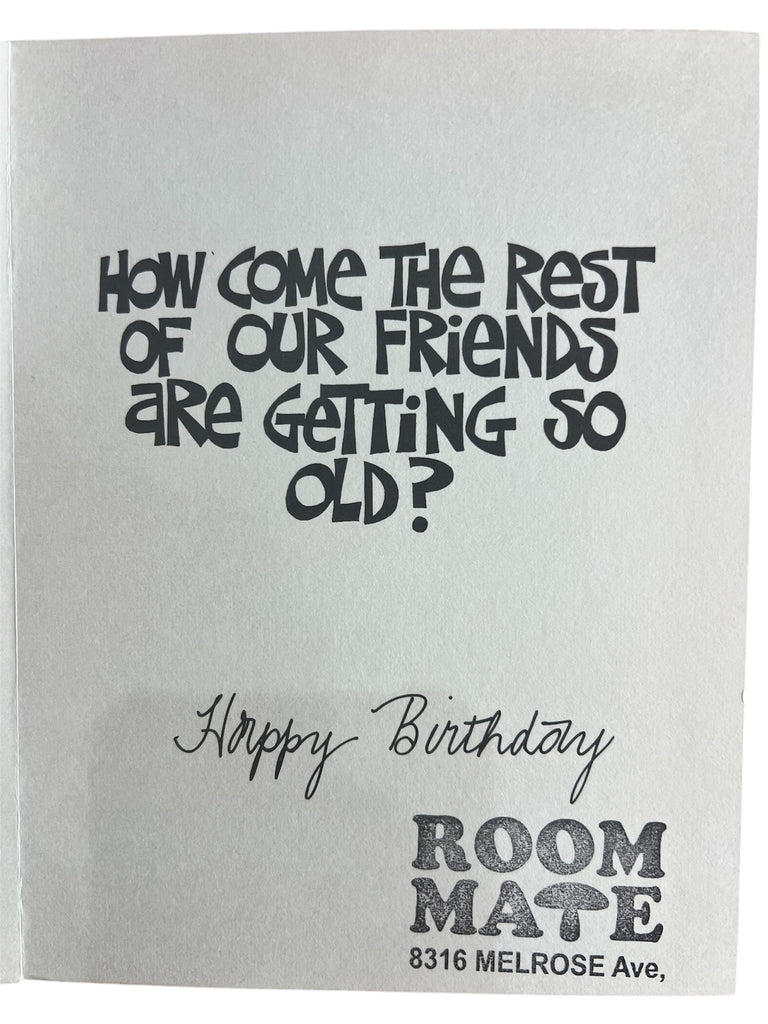 HOW COME THE REST
OF OUR FRiENDS
aRe GeTTiNG SO
OLD?
Happy Birthday
ROOM
MATE
8316 MELROSE Ave,